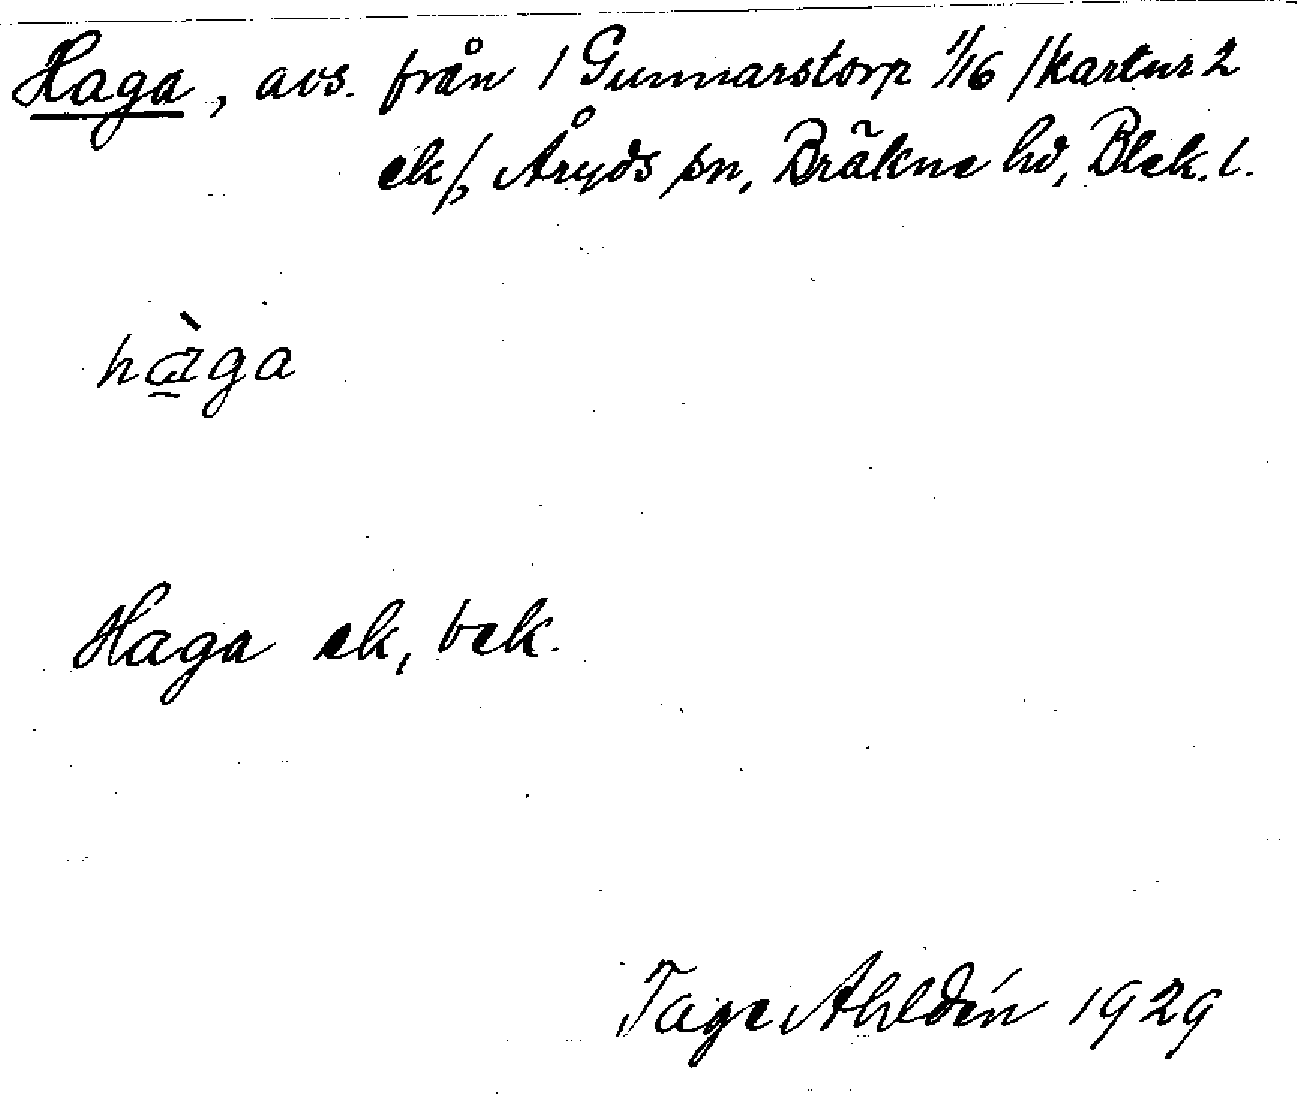 Haga, avs. från 1 Gunnarstorp 1/16 /kartur 2
ek/, Åryds sn, Bräkne hd, Blek. l.
hàga
Haga ek, bek.
Tage Ahldén 1929